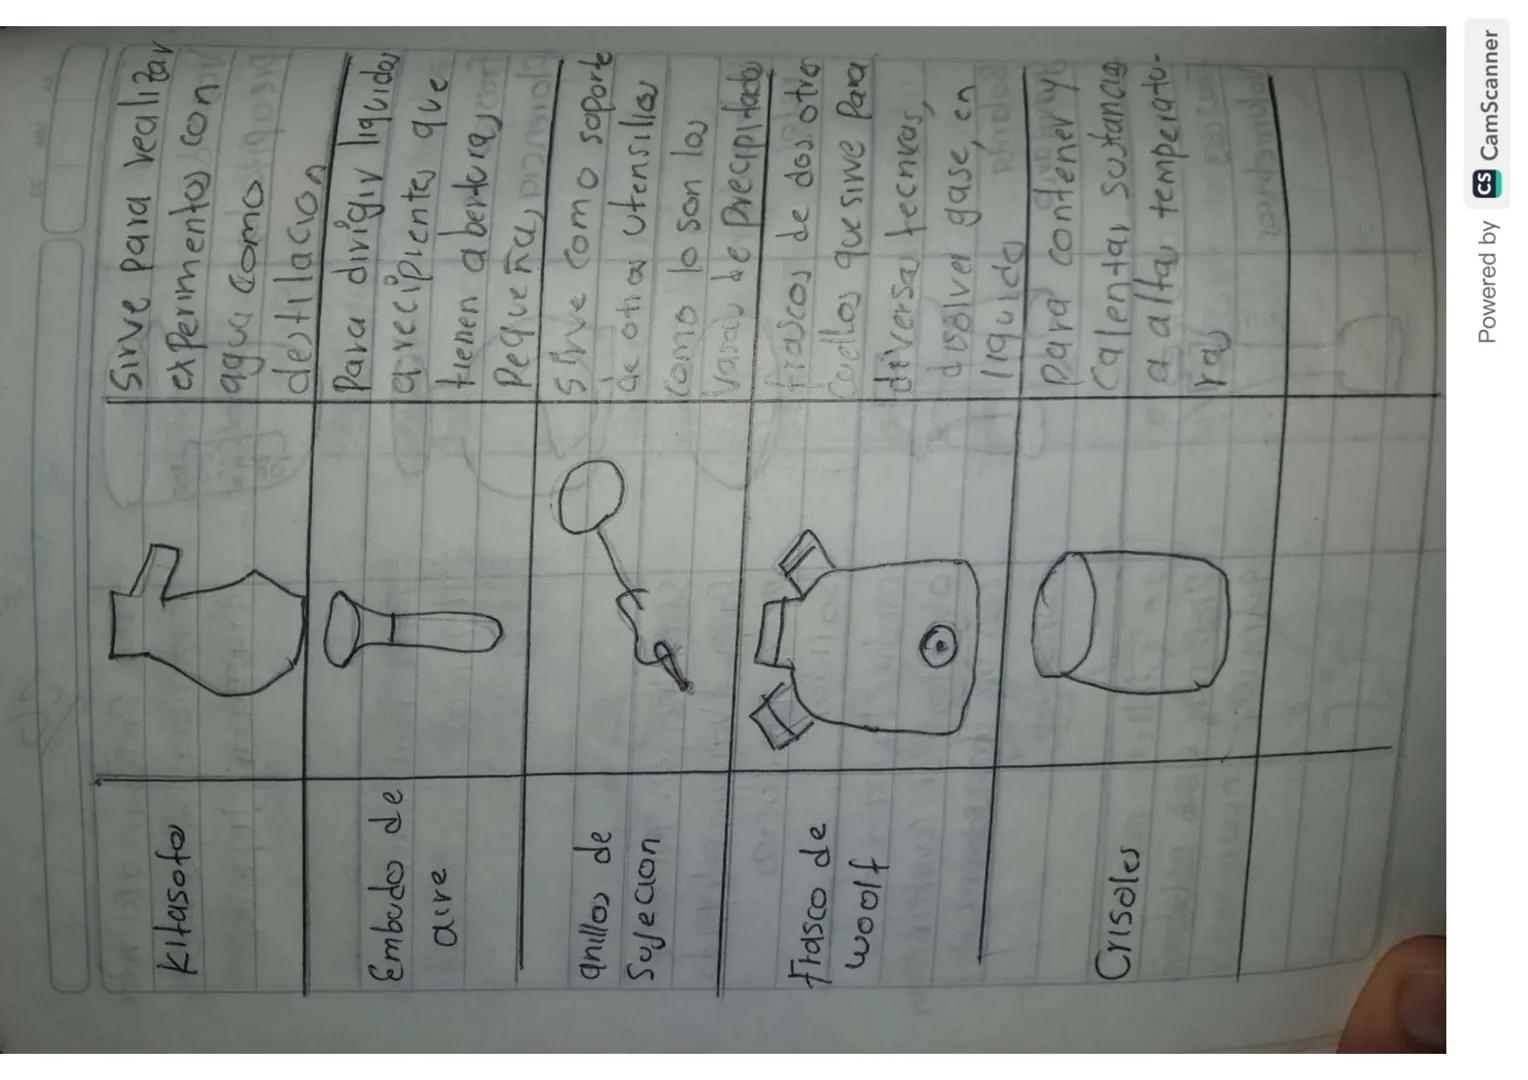 Kitasoto
Sirve para realizar
experimentos con
agua como
destilacion
Embudo de
aire
Para dirigir liquidos
a recipientes que
tienen aberturas
Pequeña,
anillos de
Sujecion
Sirve como soporte
de otros utensilios
como lo son los
vasos de precipitado
Frasco de
woolf
frascos de dos otres
Cuellos que sirve para
diversas tecnicas,
disolver gase, en
liquido
Crisoles
Para contener y
Calentar sustancias
a alta temperatu-
ra
Powered by CS CamScanner